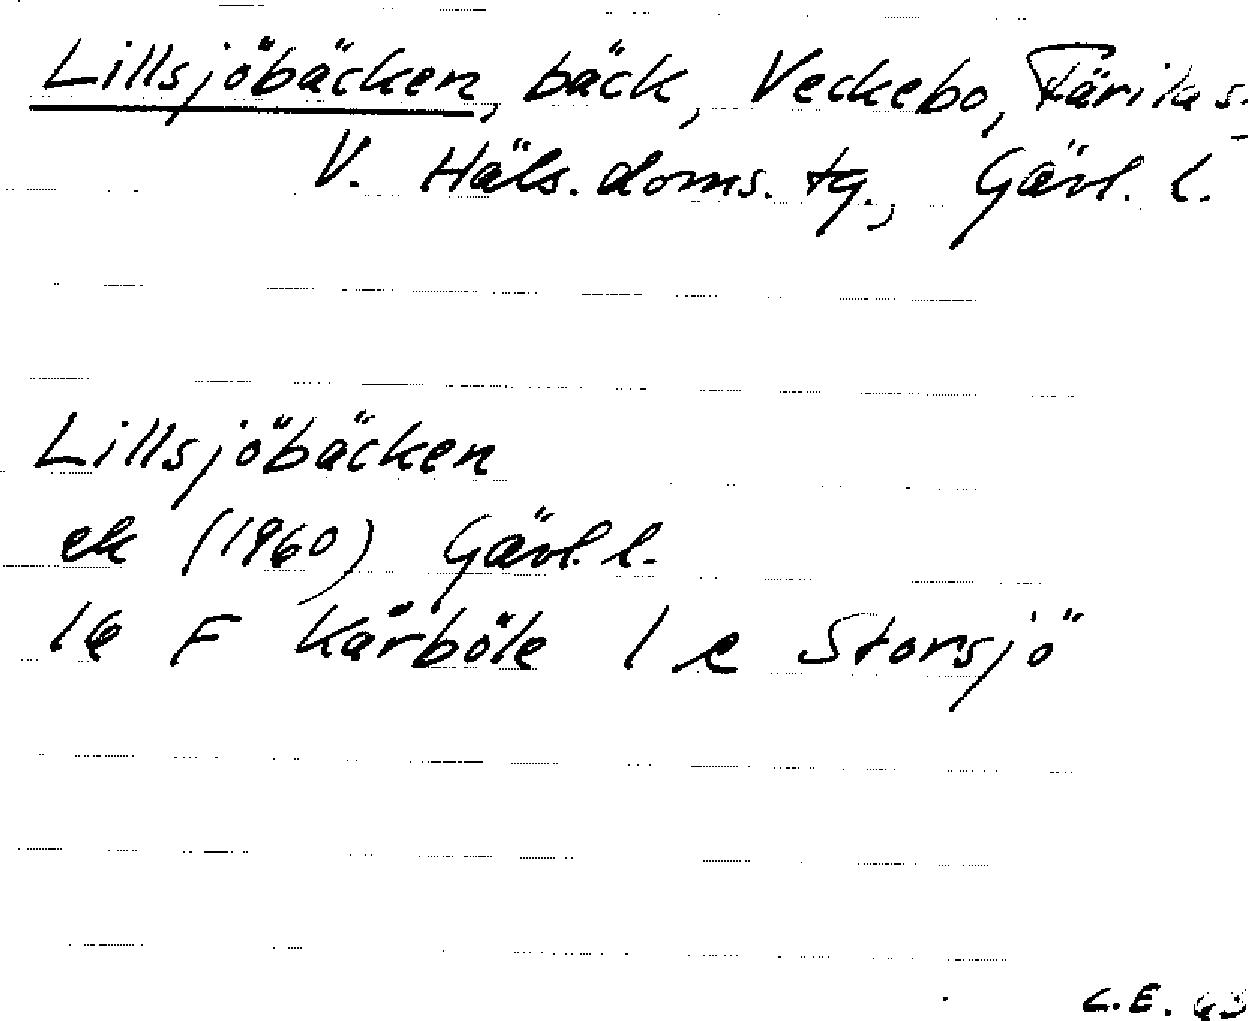 Lillsjöbäcken, bäck, Veckebo, Färila s.
V. Häls. doms. tg., Gävl. l.
Lillsjöbäcken
ek (1960) Gävl. l.
16 F Kårböle 1 e Storsjö
C.E.